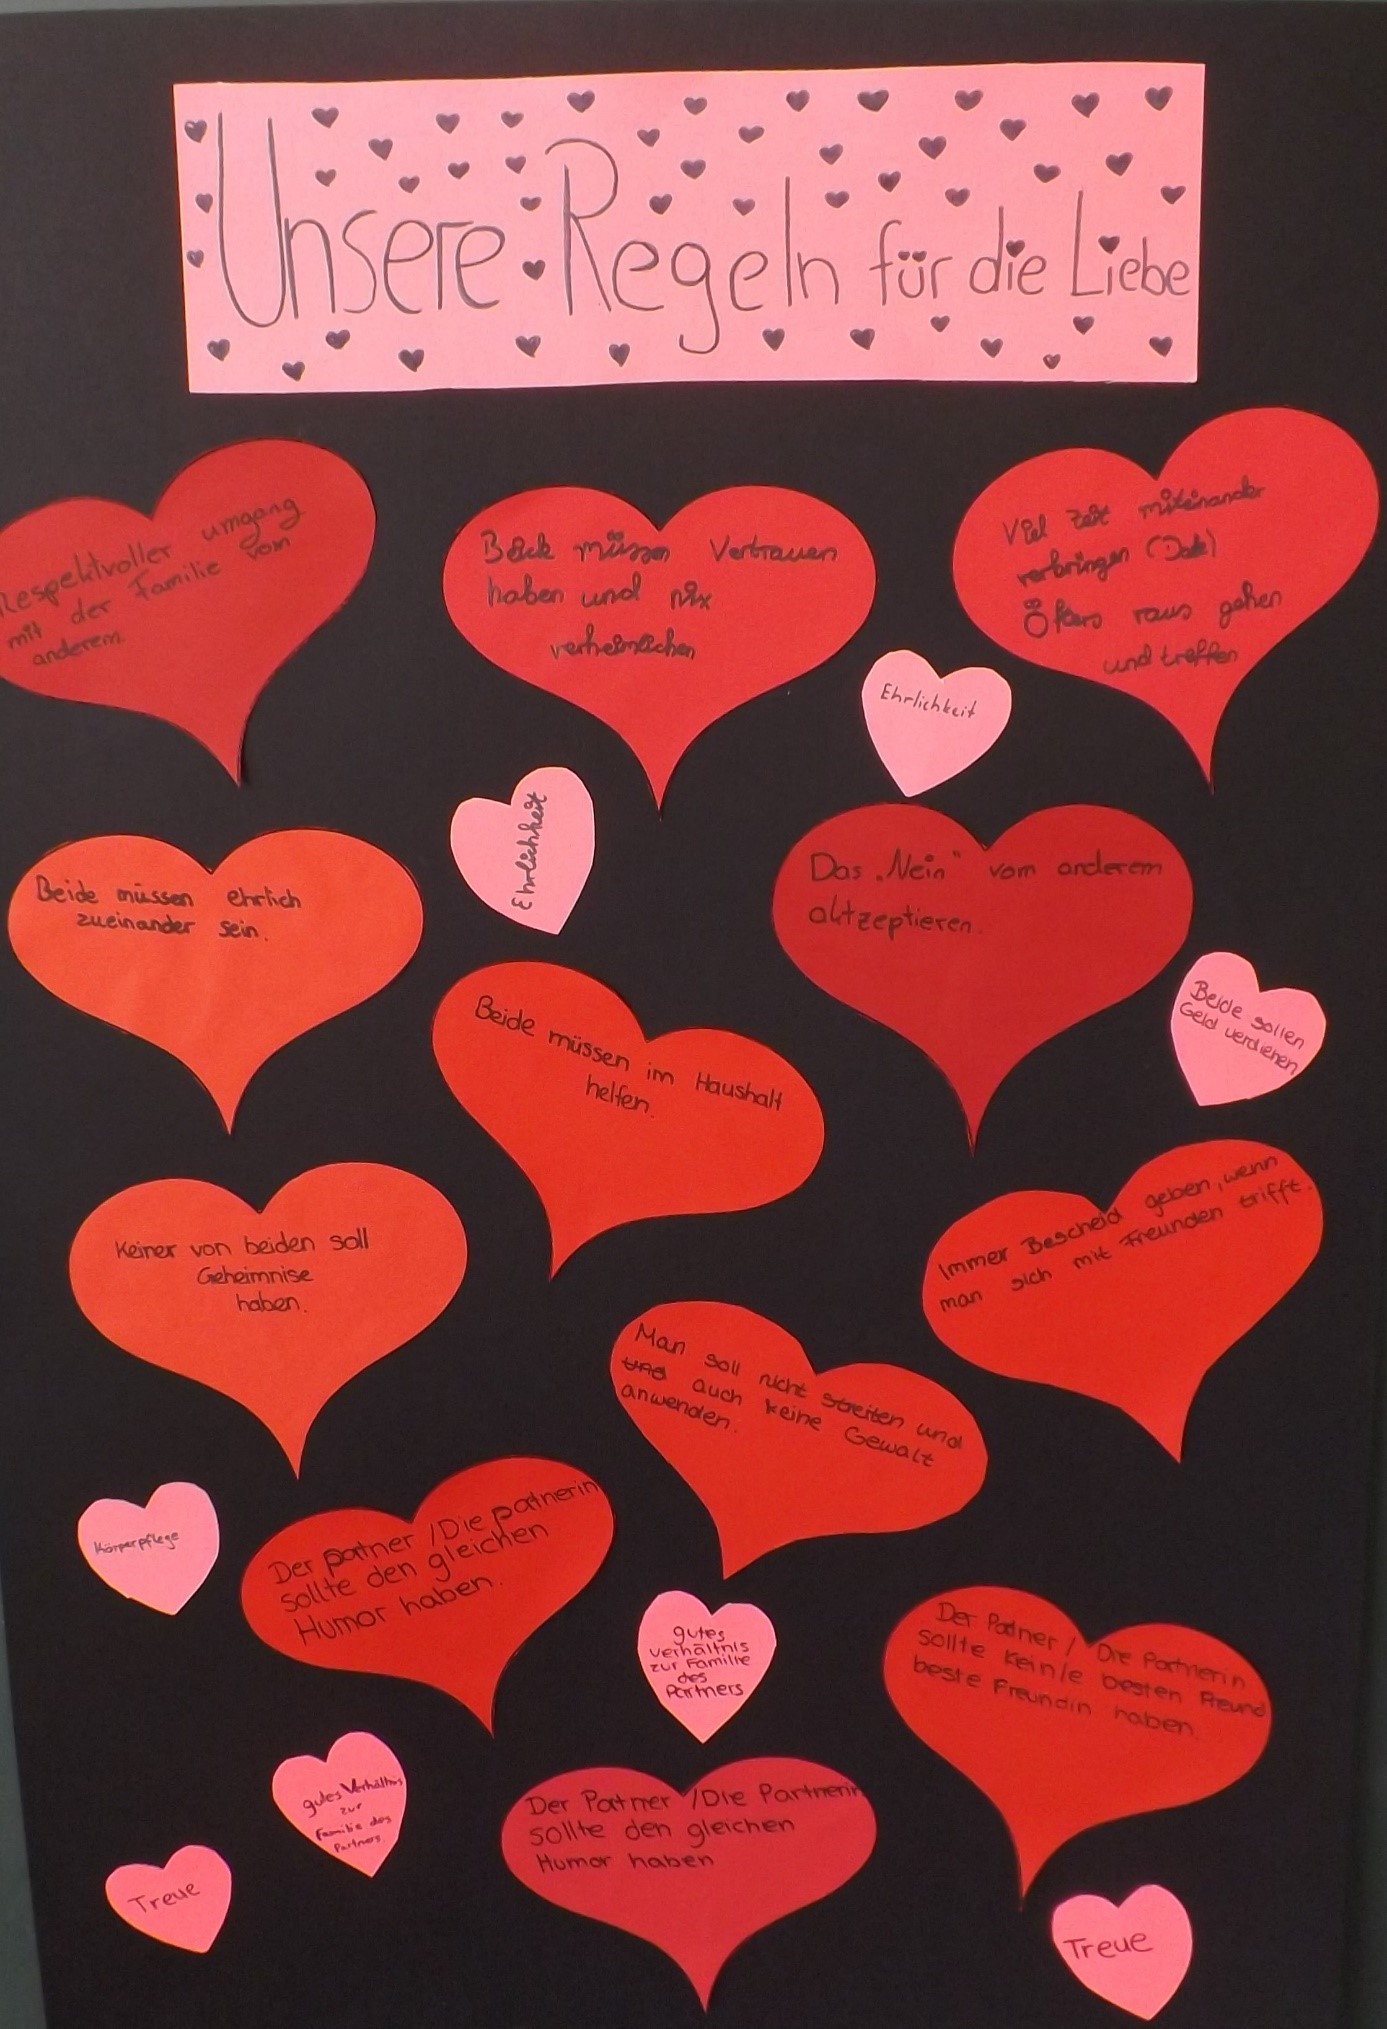 Unsere Regeln für die Liebe
Respektvoller umgang
mit der Familie vom
anderem.
müssen Vertrauen
haben und nix
verheimlichen
Viel Zeit miteinander
verbringen (Date)
Öfters raus gehen
und treffen
Ehrlichkeit
Ehrlichkeit
Beide müssen ehrlich
zueinander sein.
Das „Nein" vom anderem
aktzeptieren.
Beide sollen
Geld verdienen
Beide müssen im Haushalt
helfen.
Keiner von beiden soll
Geheimnise
haben.
Immer Bescheid geben, wenn
man sich mit Freunden trifft.
Man soll nicht streiten und
und auch keine Gewalt
anwenden.
Körperpflege
Der partner /Die partnerin
sollte den gleichen
Humor haben.
gutes
verhältnis
zur Familie
des
Partners
Der Patner / Die Partnerin
sollte kein/e besten Freund
beste Freundin haben.
gutes Verhältnis
zur
Familie des
Partners
Der Partner /Die Partnerin
sollte den gleichen
Humor haben
Treue
Treue